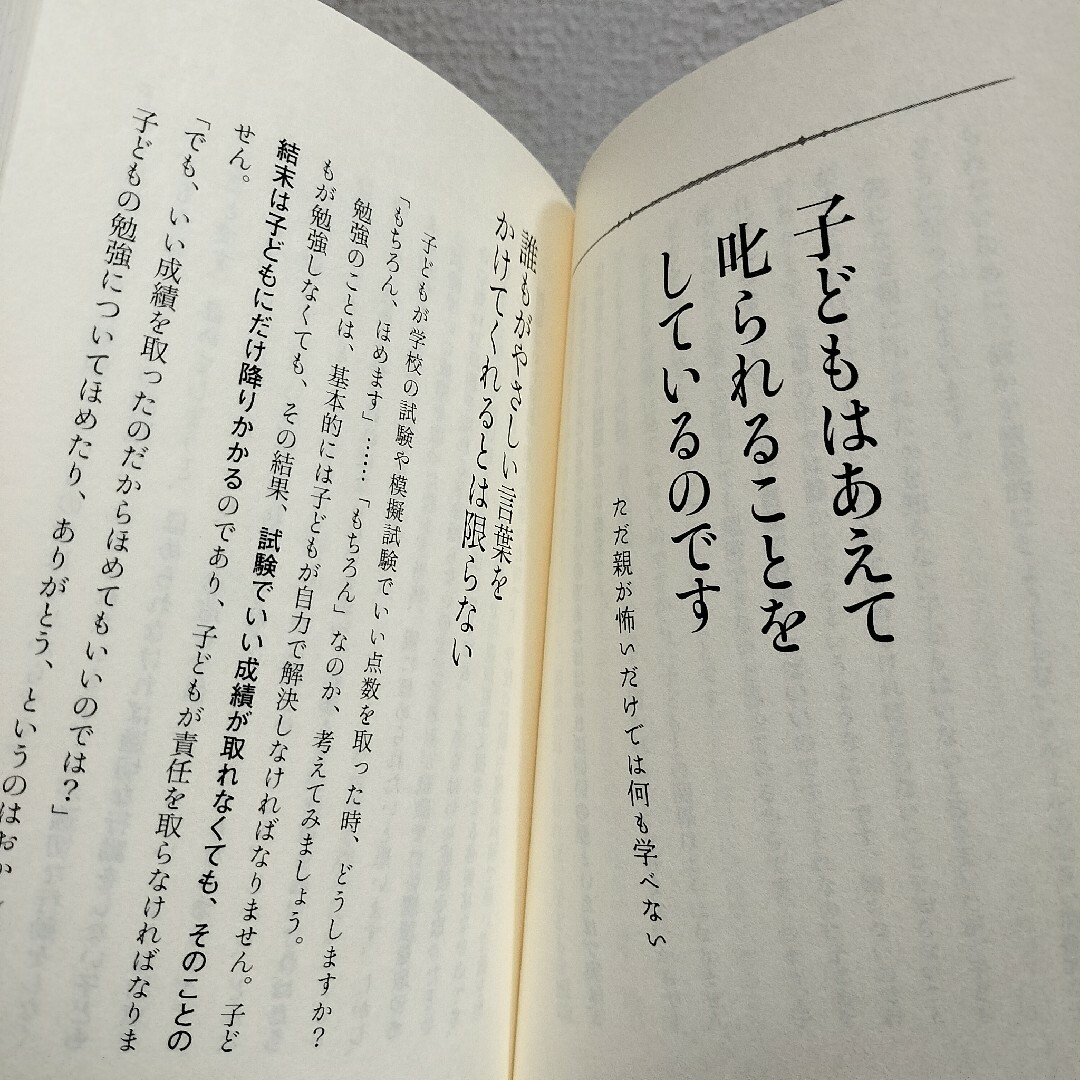 子どもはあえて
叱られることを
しているのです
ただ親が怖いだけでは何も学べない
誰もがやさしい言葉を
かけてくれるとは限らない
子どもが学校の試験や模擬試験でいい点数を取った時、どうしますか?
「もちろん、ほめます」……「もちろん」なのか、考えてみましょう。
勉強のことは、基本的には子どもが自力で解決しなければなりません。子ど
もが勉強しなくても、その結果、試験でいい成績が取れなくても、そのことの
結末は子どもにだけ降りかかるのであり、子どもが責任を取らなければなりま
せん。
「でも、いい成績を取ったのだからほめてもいいのでは?」
子どもの勉強についてほめたり、ありがとう、というのはおか